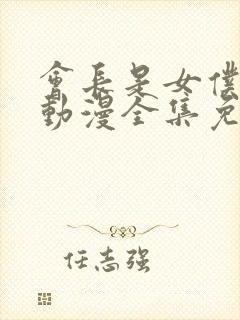 會長是女僕
動漫全集免
任志强